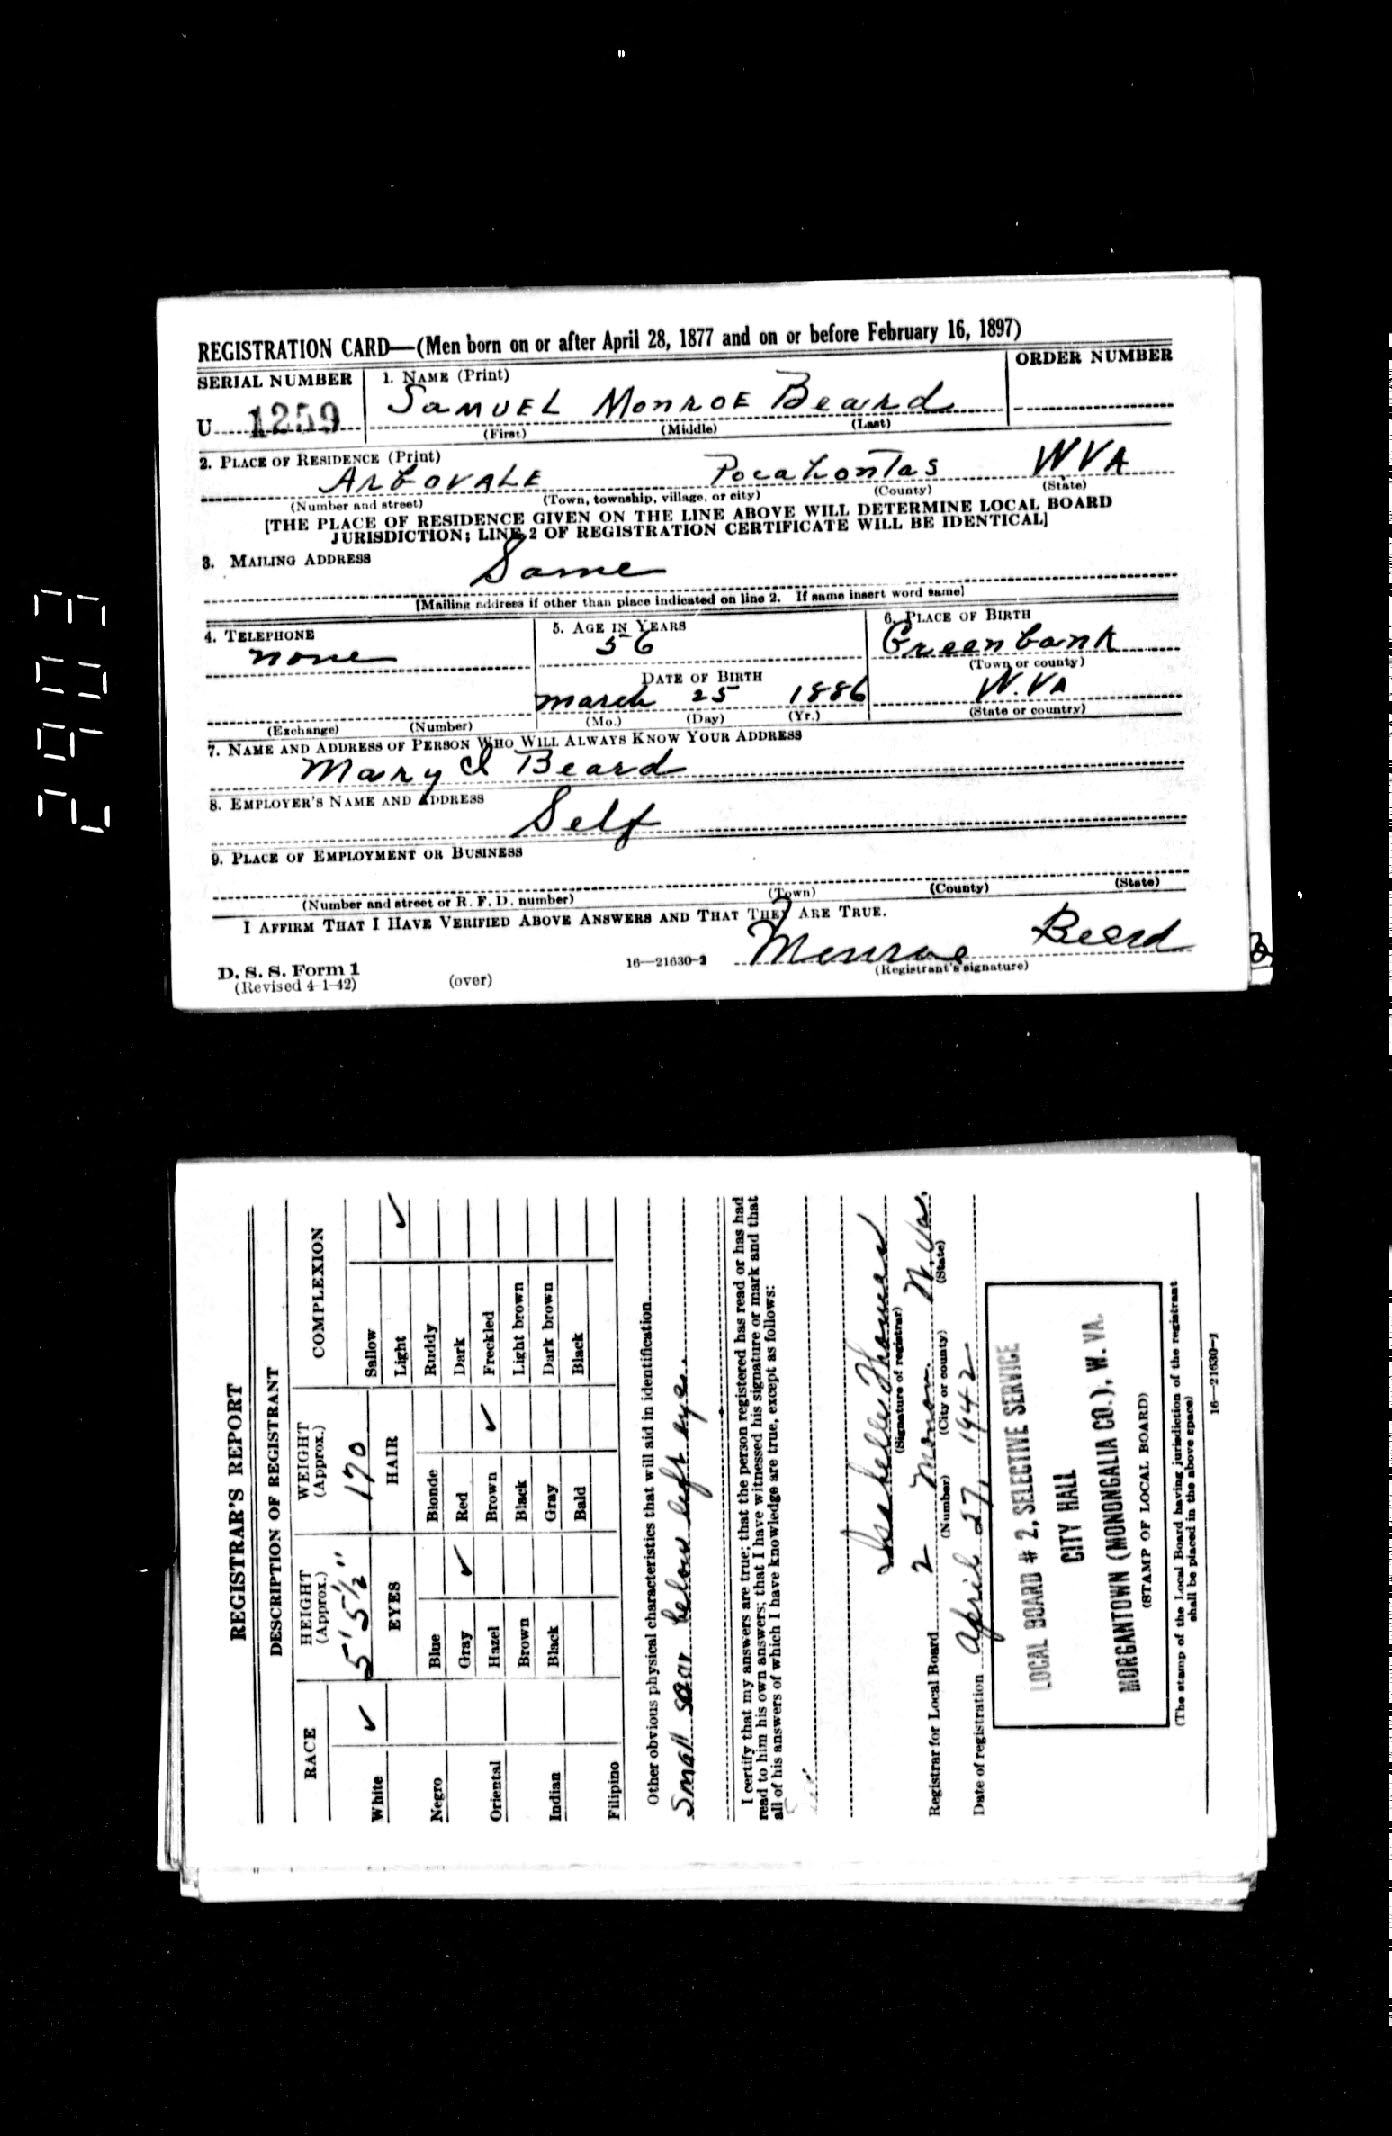 2903
REGISTRATION CARD—(Men born on or after April 28, 1877 and on or before February 16, 1897)
SERIAL NUMBER 1. NAME (Print) ORDER NUMBER
U 1259 SAMUEL MONROE Beard
(First) (Middle) (Last)
2. PLACE OF RESIDENCE (Print)
ArbovALE Pocahontas W VA
(Number and street) (Town, township, village, or city) (County) (State)
[THE PLACE OF RESIDENCE GIVEN ON THE LINE ABOVE WILL DETERMINE LOCAL BOARD
JURISDICTION; LINE 2 OF REGISTRATION CERTIFICATE WILL BE IDENTICAL]
3. MAILING ADDRESS
Same
[Mailing address if other than place indicated on line 2. If same insert word same]
4. TELEPHONE 5. AGE IN YEARS 6. PLACE OF BIRTH
none 56 Greenbank
(Town or county)
DATE OF BIRTH
March 25 1886 W.VA
(Exchange) (Number) (Mo.) (Day) (Yr.) (State or country)
7. NAME AND ADDRESS OF PERSON WHO WILL ALWAYS KNOW YOUR ADDRESS
Mary I Beard
8. EMPLOYER'S NAME AND ADDRESS
Self
9. PLACE OF EMPLOYMENT OR BUSINESS
(Number and street or R. F. D. number) (Town) (County) (State)
I AFFIRM THAT I HAVE VERIFIED ABOVE ANSWERS AND THAT THEY ARE TRUE.
Monroe Beard
D. S. S. Form 1 16—21630-2 (Registrant's signature)
(Revised 4-1-42) (over)
REGISTRAR'S REPORT
DESCRIPTION OF REGISTRANT
RACE HEIGHT (Approx.) WEIGHT (Approx.) COMPLEXION
5' 5½" 170
White ✓ EYES HAIR Sallow
Light ✓
Negro Blue Blonde Ruddy
Gray ✓ Red Dark
Oriental Hazel Brown ✓ Freckled
Brown Black Light brown
Indian Black Gray Dark brown
Bald Black
Filipino
Other obvious physical characteristics that will aid in identification
Small scar below left eye.
I certify that my answers are true; that the person registered has read or has had
read to him his own answers; that I have witnessed his signature or mark and that
all of his answers of which I have knowledge are true, except as follows:
Isabelle Thomas
(Signature of registrar)
Registrar for Local Board 2 Monon. W. Va.
(Number) (City or county) (State)
Date of registration April 27, 1942
LOCAL BOARD # 2, SELECTIVE SERVICE
CITY HALL
MORGANTOWN (MONONGALIA CO.), W. VA.
(STAMP OF LOCAL BOARD)
(The stamp of the Local Board having jurisdiction of the registrant
shall be placed in the above space)
16—21630-1